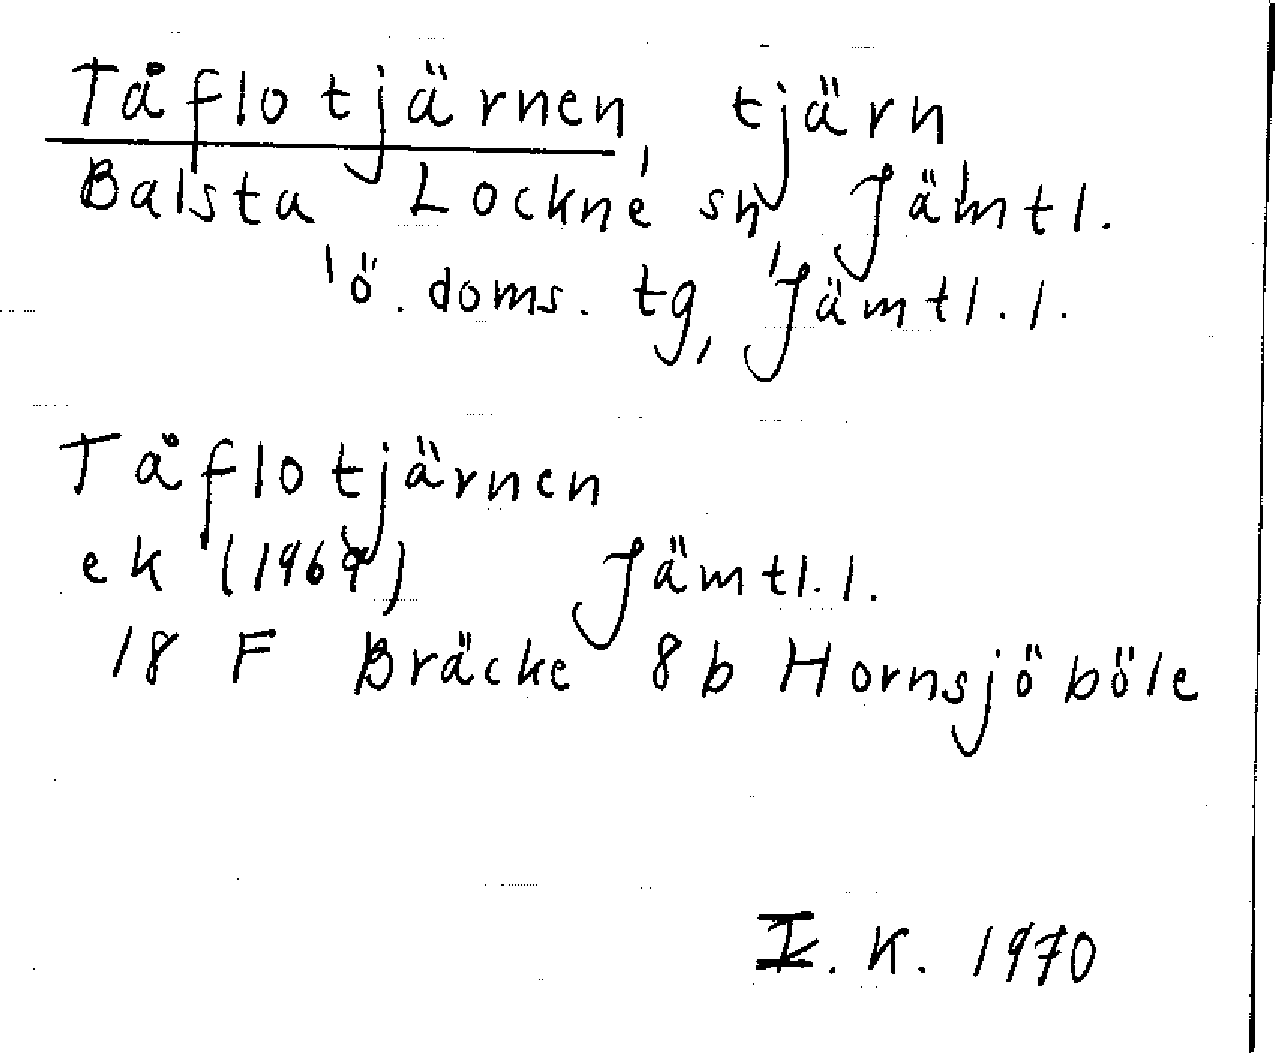 Tåflotjärnen, tjärn
Balsta, Lockne sn, Jämtl.
ö. doms. tg, Jämtl. l.
Tåflotjärnen
ek (1969) Jämtl. l.
18 F Bräcke 8b Hornsjöböle
I. K. 1970